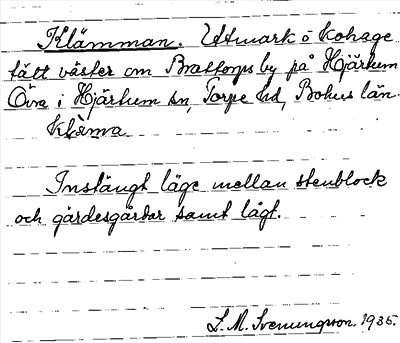 Klämman. Utmark o kohage
tätt väster om Brattorps by på Hjärtum
Övra i Hjärtum sn, Torpe hd, Bohus län.
Klä̀ma
Instängt läge mellan stenblock
och gärdesgårdar samt lågt.
L. M. Svenungsson. 1935.